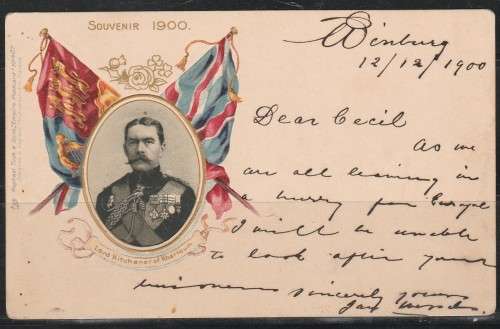 SOUVENIR 1900.
Winburg
12/12/1900
Dear Cecil
As we
are all leaving in
a hurry for Europe
I will be unable
to look after your
sincerely yours
Lord Kitchener of Khartoum